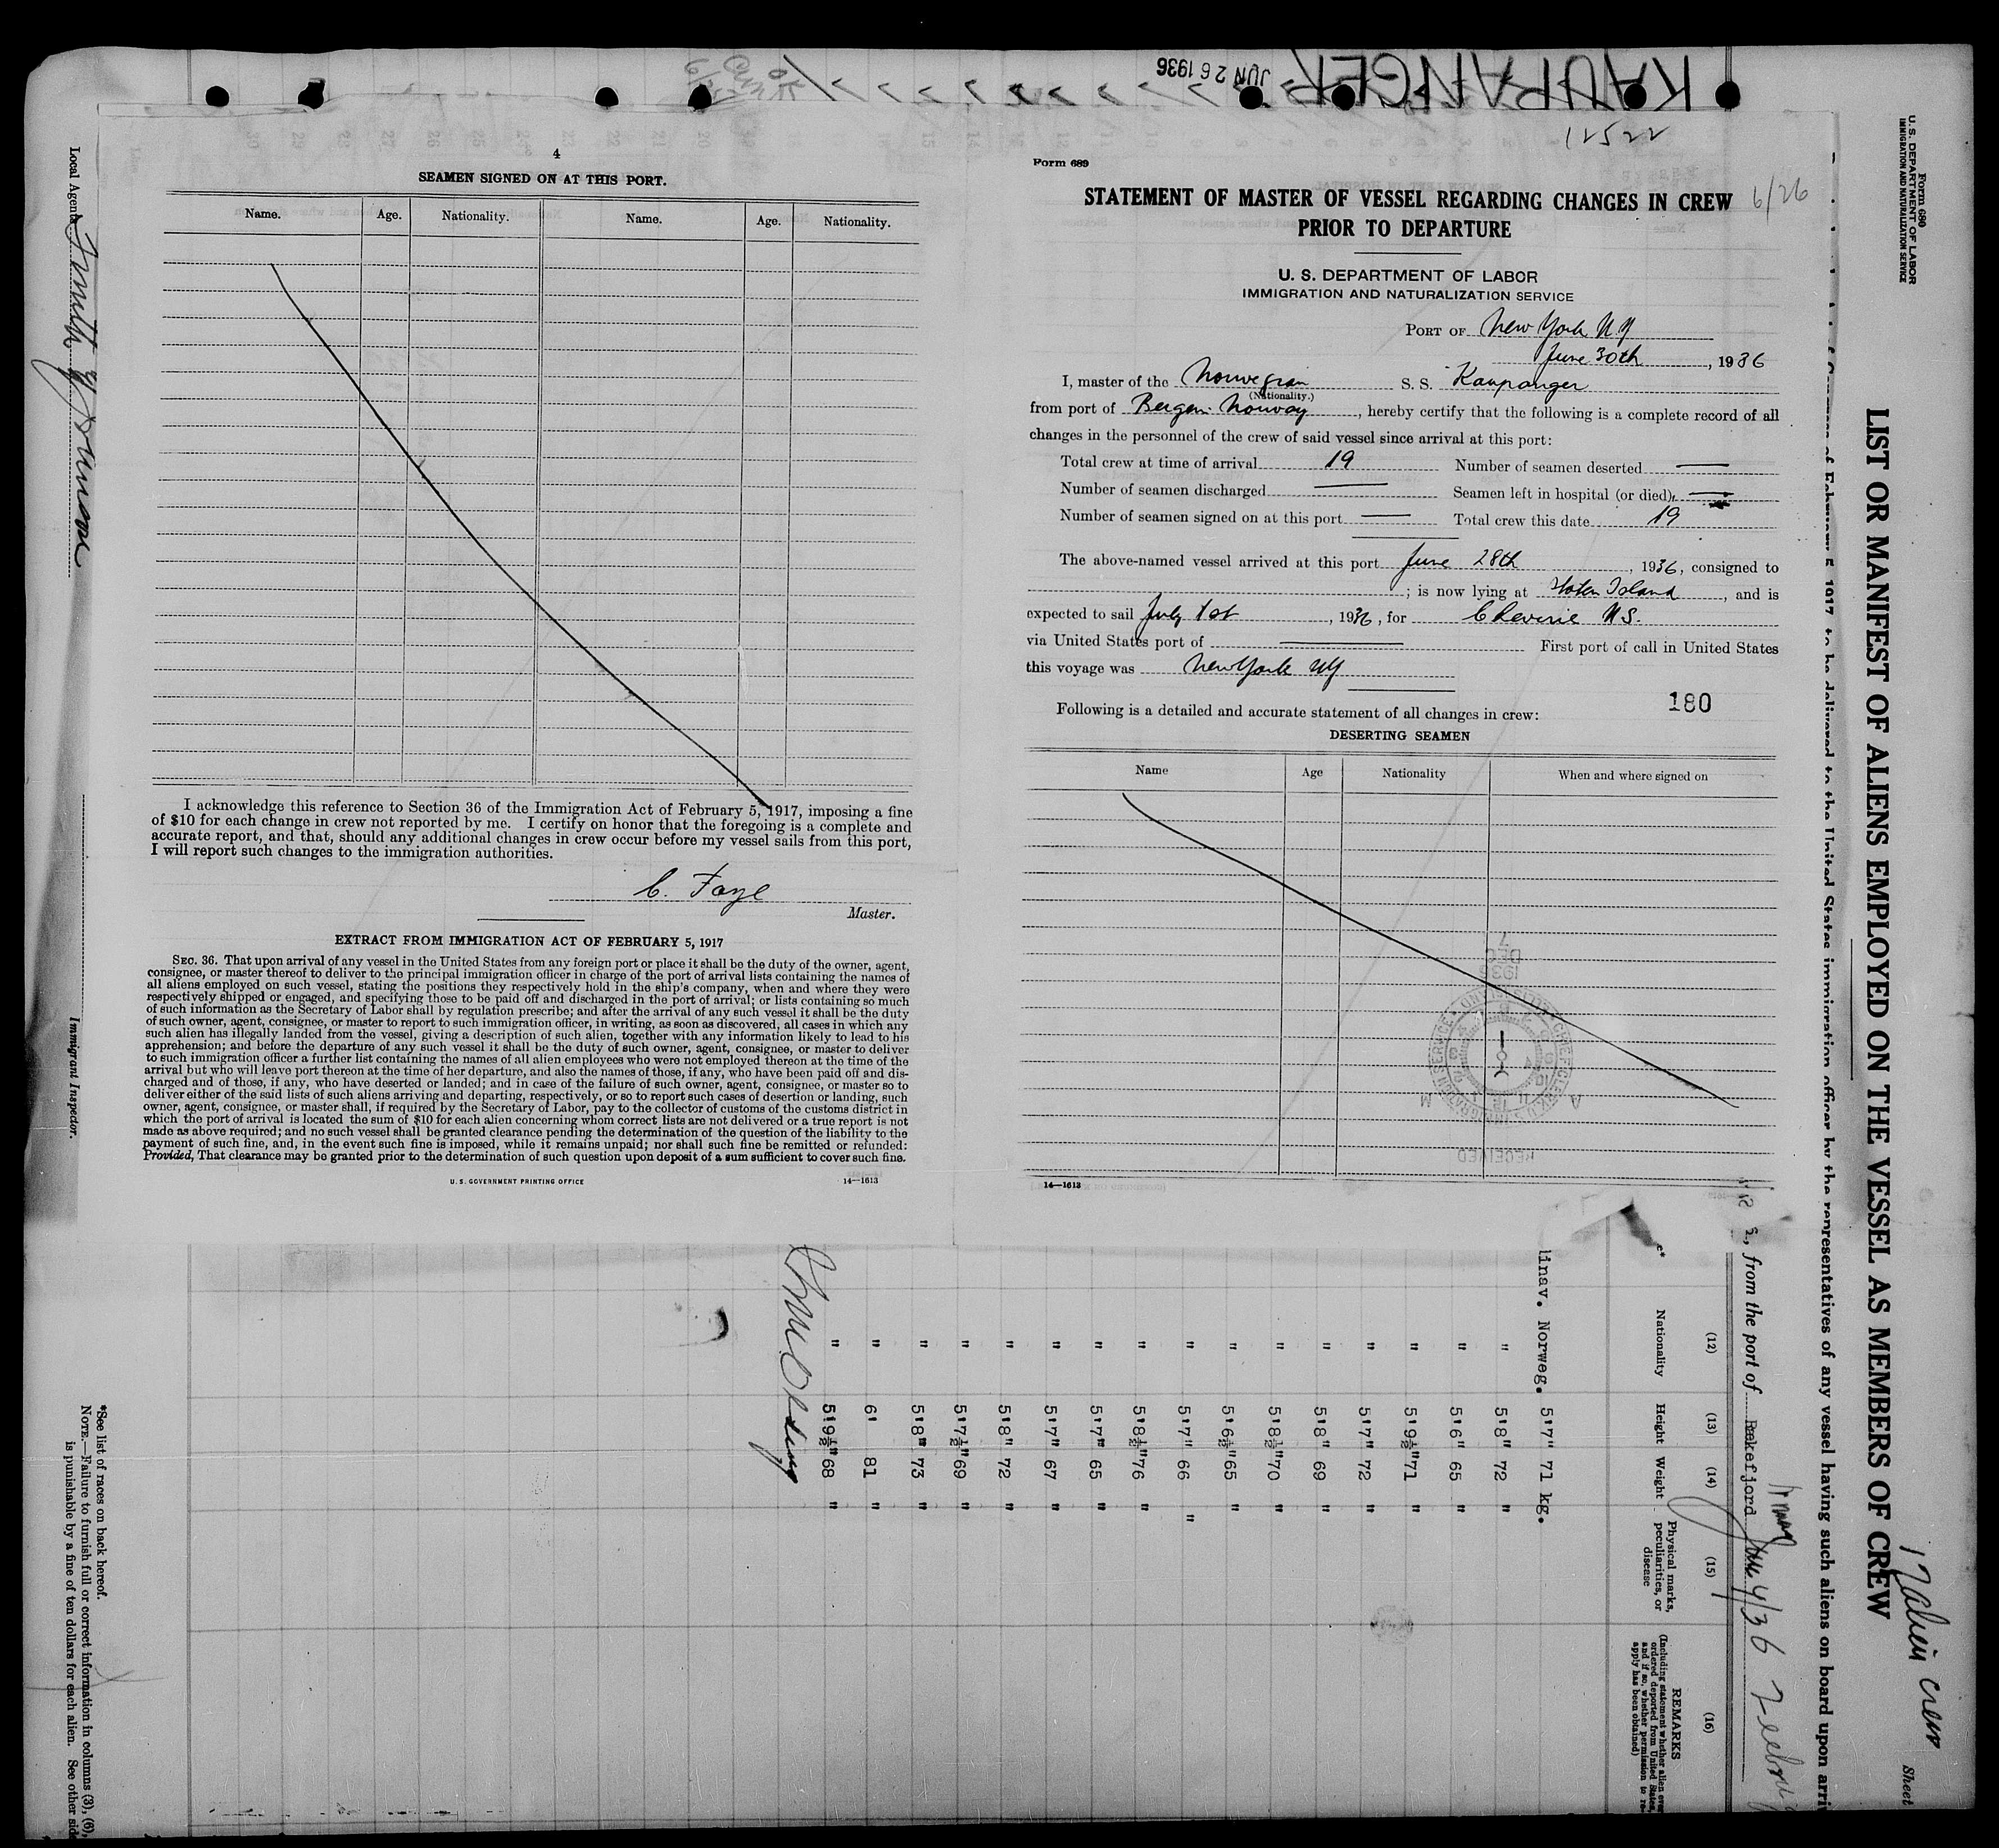 KAUPANGER
JUN 26 1936
12522
6/26
4
SEAMEN SIGNED ON AT THIS PORT.
Name. Age. Nationality. Name. Age. Nationality.
I acknowledge this reference to Section 36 of the Immigration Act of February 5, 1917, imposing a fine
of $10 for each change in crew not reported by me. I certify on honor that the foregoing is a complete and
accurate report, and that, should any additional changes in crew occur before my vessel sails from this port,
I will report such changes to the immigration authorities.
C. Faye
Master.
EXTRACT FROM IMMIGRATION ACT OF FEBRUARY 5, 1917
SEC. 36. That upon arrival of any vessel in the United States from any foreign port or place it shall be the duty of the owner, agent,
consignee, or master thereof to deliver to the principal immigration officer in charge of the port of arrival lists containing the names of
all aliens employed on such vessel, stating the positions they respectively hold in the ship's company, when and where they were
respectively shipped or engaged, and specifying those to be paid off and discharged in the port of arrival; or lists containing so much
of such information as the Secretary of Labor shall by regulation prescribe; and after the arrival of any such vessel it shall be the duty
of such owner, agent, consignee, or master to report to such immigration officer, in writing, as soon as discovered, all cases in which any
such alien has illegally landed from the vessel, giving a description of such alien, together with any information likely to lead to his
apprehension; and before the departure of any such vessel it shall be the duty of such owner, agent, consignee, or master to deliver
to such immigration officer a further list containing the names of all alien employees who were not employed thereon at the time of the
arrival but who will leave port thereon at the time of her departure, and also the names of those, if any, who have been paid off and dis-
charged and of those, if any, who have deserted or landed; and in case of the failure of such owner, agent, consignee, or master so to
deliver either of the said lists of such aliens arriving and departing, respectively, or so to report such cases of desertion or landing, such
owner, agent, consignee, or master shall, if required by the Secretary of Labor, pay to the collector of customs of the customs district in
which the port of arrival is located the sum of $10 for each alien concerning whom correct lists are not delivered or a true report is not
made as above required; and no such vessel shall be granted clearance pending the determination of the question of the liability to the
payment of such fine, and, in the event such fine is imposed, while it remains unpaid; nor shall such fine be remitted or refunded:
Provided, That clearance may be granted prior to the determination of such question upon deposit of a sum sufficient to cover such fine.
U. S. GOVERNMENT PRINTING OFFICE 14—1613
Form 689
STATEMENT OF MASTER OF VESSEL REGARDING CHANGES IN CREW
PRIOR TO DEPARTURE
U. S. DEPARTMENT OF LABOR
IMMIGRATION AND NATURALIZATION SERVICE
PORT OF New York N Y
June 30th, 1936
I, master of the Norwegian S. S. Kaupanger
(Nationality.)
from port of Bergen Norway, hereby certify that the following is a complete record of all
changes in the personnel of the crew of said vessel since arrival at this port:
Total crew at time of arrival 19 Number of seamen deserted —
Number of seamen discharged — Seamen left in hospital (or died) —
Number of seamen signed on at this port — Total crew this date 19
The above-named vessel arrived at this port June 28th, 1936, consigned to
; is now lying at Staten Island, and is
expected to sail July 1st, 1936, for Cheverie N.S.
via United States port of — First port of call in United States
this voyage was New York NY
180
Following is a detailed and accurate statement of all changes in crew:
DESERTING SEAMEN
Name Age Nationality When and where signed on
RECEIVED
DEC 7 1936
14—1613
Form 680
U. S. DEPARTMENT OF LABOR
IMMIGRATION AND NATURALIZATION SERVICE
LIST OR MANIFEST OF ALIENS EMPLOYED ON THE VESSEL AS MEMBERS OF CREW
alien crew
Sheet
1917, to be delivered to the United States immigration officer by the representatives of any vessel having such aliens on board upon arri
from the port of
(12) (13) (14) (15) (16)
Nationality Height Weight Physical marks, peculiarities, or disease REMARKS
(Including statement whether alien ever ordered deported from United States, and if so, whether permission to re-apply has been obtained)
linav. Norweg. 5'7" 71 kg.
" 5'8" 72 "
" 5'6" 65 "
" 5'9½" 71 "
" 5'7" 72 "
" 5'8" 69 "
" 5'8½" 70 "
" 5'6½" 65 "
" 5'7" 66 "
" 5'8½" 76 "
" 5'7" 65 "
" 5'7" 67 "
" 5'8" 72 "
" 5'7½" 69 "
" 5'8" 73 "
" 6' 81 "
" 5'9½" 68 "
Local Agents Smith & Johnson
Immigrant Inspector.
*See list of races on back hereof.
NOTE.—Failure to furnish full or correct information in columns (3), (6),
is punishable by a fine of ten dollars for each alien. See other side